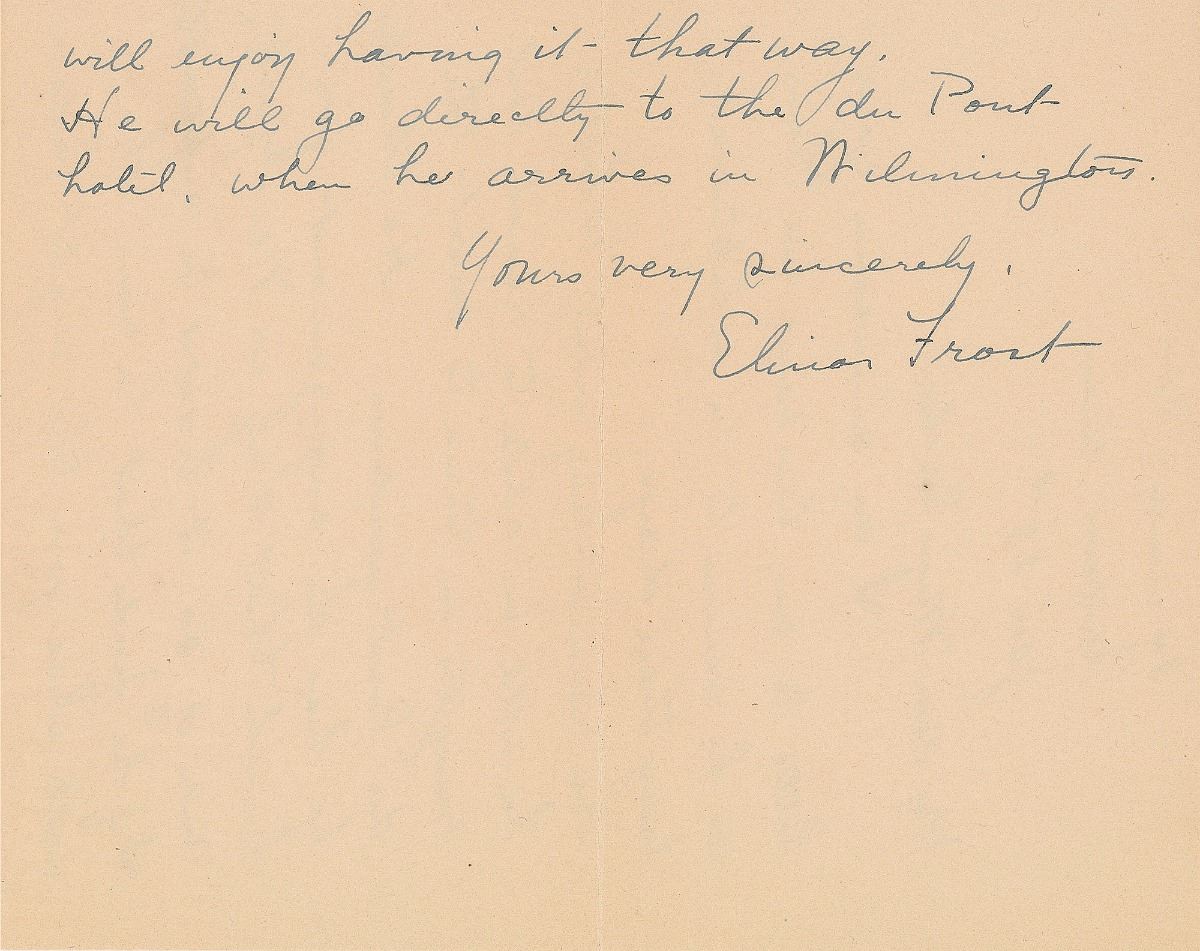 will enjoy having it that way.
He will go directly to the du Pont
hotel, when he arrives in Wilmington.
Yours very sincerely,
Elinor Frost